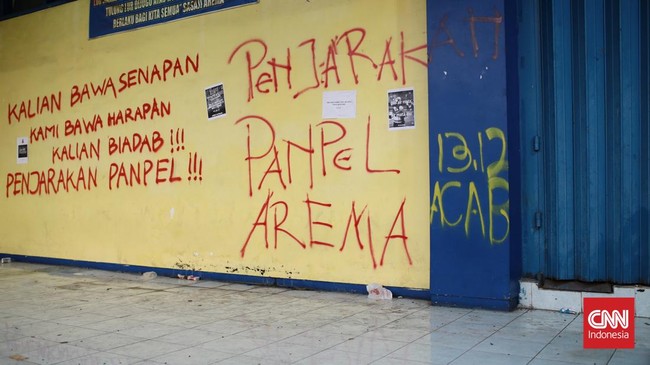 BERLAKU BAGI KITA SEMUA" SASAM ARENA
KALIAN BAWA SENAPAN
KAMI BAWA HARAPAN
KALIAN BIADAB !!!
PENJARAKAN PANPEL !!!
PENJARAKAN
PANPEL
AREMA
13,12
ACAB
CNN
Indonesia